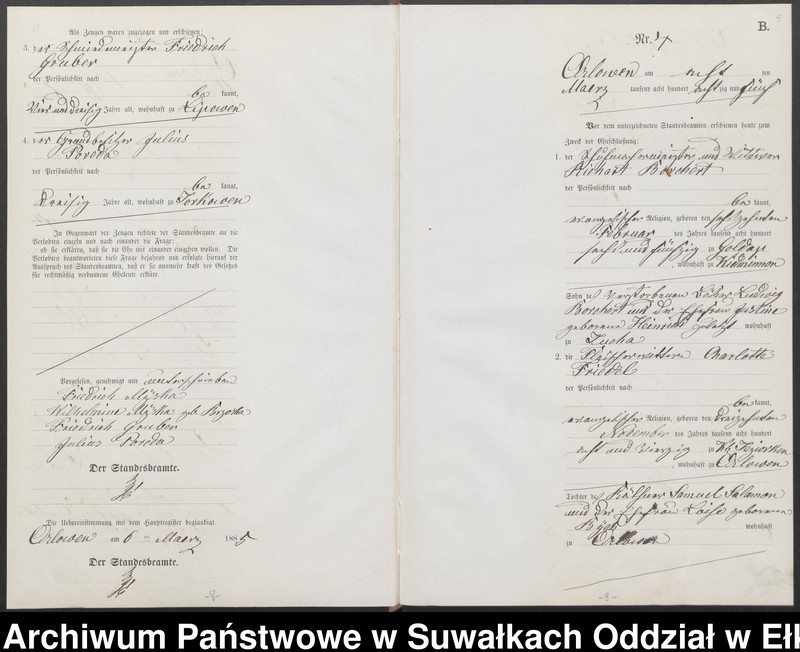 Als Zeugen waren zugezogen und erschienen:
3. der Schmiedemeister Friedrich
Gruber
der Persönlichkeit nach
be kannt,
vier und dreißig Jahre alt, wohnhaft zu Lipowen
4. der Grundbesitzer Julius
Poreda
der Persönlichkeit nach
be kannt,
dreißig Jahre alt, wohnhaft zu
In Gegenwart der Zeugen richtete der Standesbeamte an die
Verlobten einzeln und nach einander die Frage:
ob sie erklären, daß sie die Ehe mit einander eingehen wollen. Die
Verlobten beantworteten diese Frage bejahend und erfolgte hierauf der
Ausspruch des Standesbeamten, daß er sie nunmehr kraft des Gesetzes
für rechtmäßig verbundene Eheleute erkläre.
Vorgelesen, genehmigt und unterschrieben
Friedrich Myska
Wilhelmine Myska geb Brzoska
Friedrich Gruber
Julius Poreda
Der Standesbeamte.
Die Uebereinstimmung mit dem Hauptregister beglaubigt
Orlowen am 6 ten Maerz 1885
Der Standesbeamte.
-8-
5
B.
Nr. 4
Orlowen am acht ten
Maerz tausend acht hundert achtzig und fünf
Vor dem unterzeichneten Standesbeamten erschienen heute zum
Zweck der Eheschließung:
1. der Schuhmachermeister und Wittwer
Richart Borchert
der Persönlichkeit nach
be kannt,
evangelischer Religion, geboren den achtzehnten
Februar des Jahres tausend acht hundert
sechs und fünfzig zu Goldap
, wohnhaft zu
Sohn des verstorbenen Ludwig
Borchert und der Ehefrau Justine
geborene Heinrich zuletzt wohnhaft
zu Zucha
2. die Fleischerwittwe Charlotte
Friedel
der Persönlichkeit nach
be kannt,
evangelischer Religion, geboren den dreizehnten
November des Jahres tausend acht hundert
acht und vierzig zu Kl. Jesziorken
, wohnhaft zu Orlowen
Tochter des Käthner Samuel Salamon
und der Ehefrau Loise geborene
wohnhaft
zu Orlowen
-9-
Archiwum Państwowe w Suwałkach Oddział w Ełk